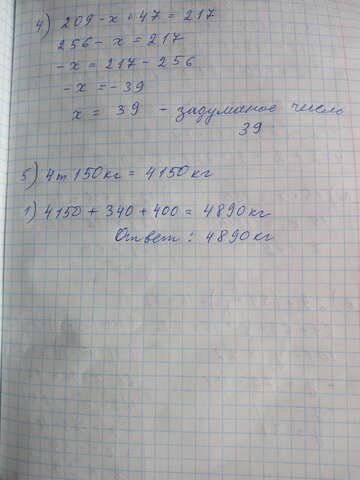 4) 209 - x + 47 = 217
256 - x = 217
-x = 217 - 256
-x = -39
x = 39 - задуманое число
39
5) 4т 150кг = 4150кг
1) 4150 + 340 + 400 = 4890кг
Ответ: 4890кг